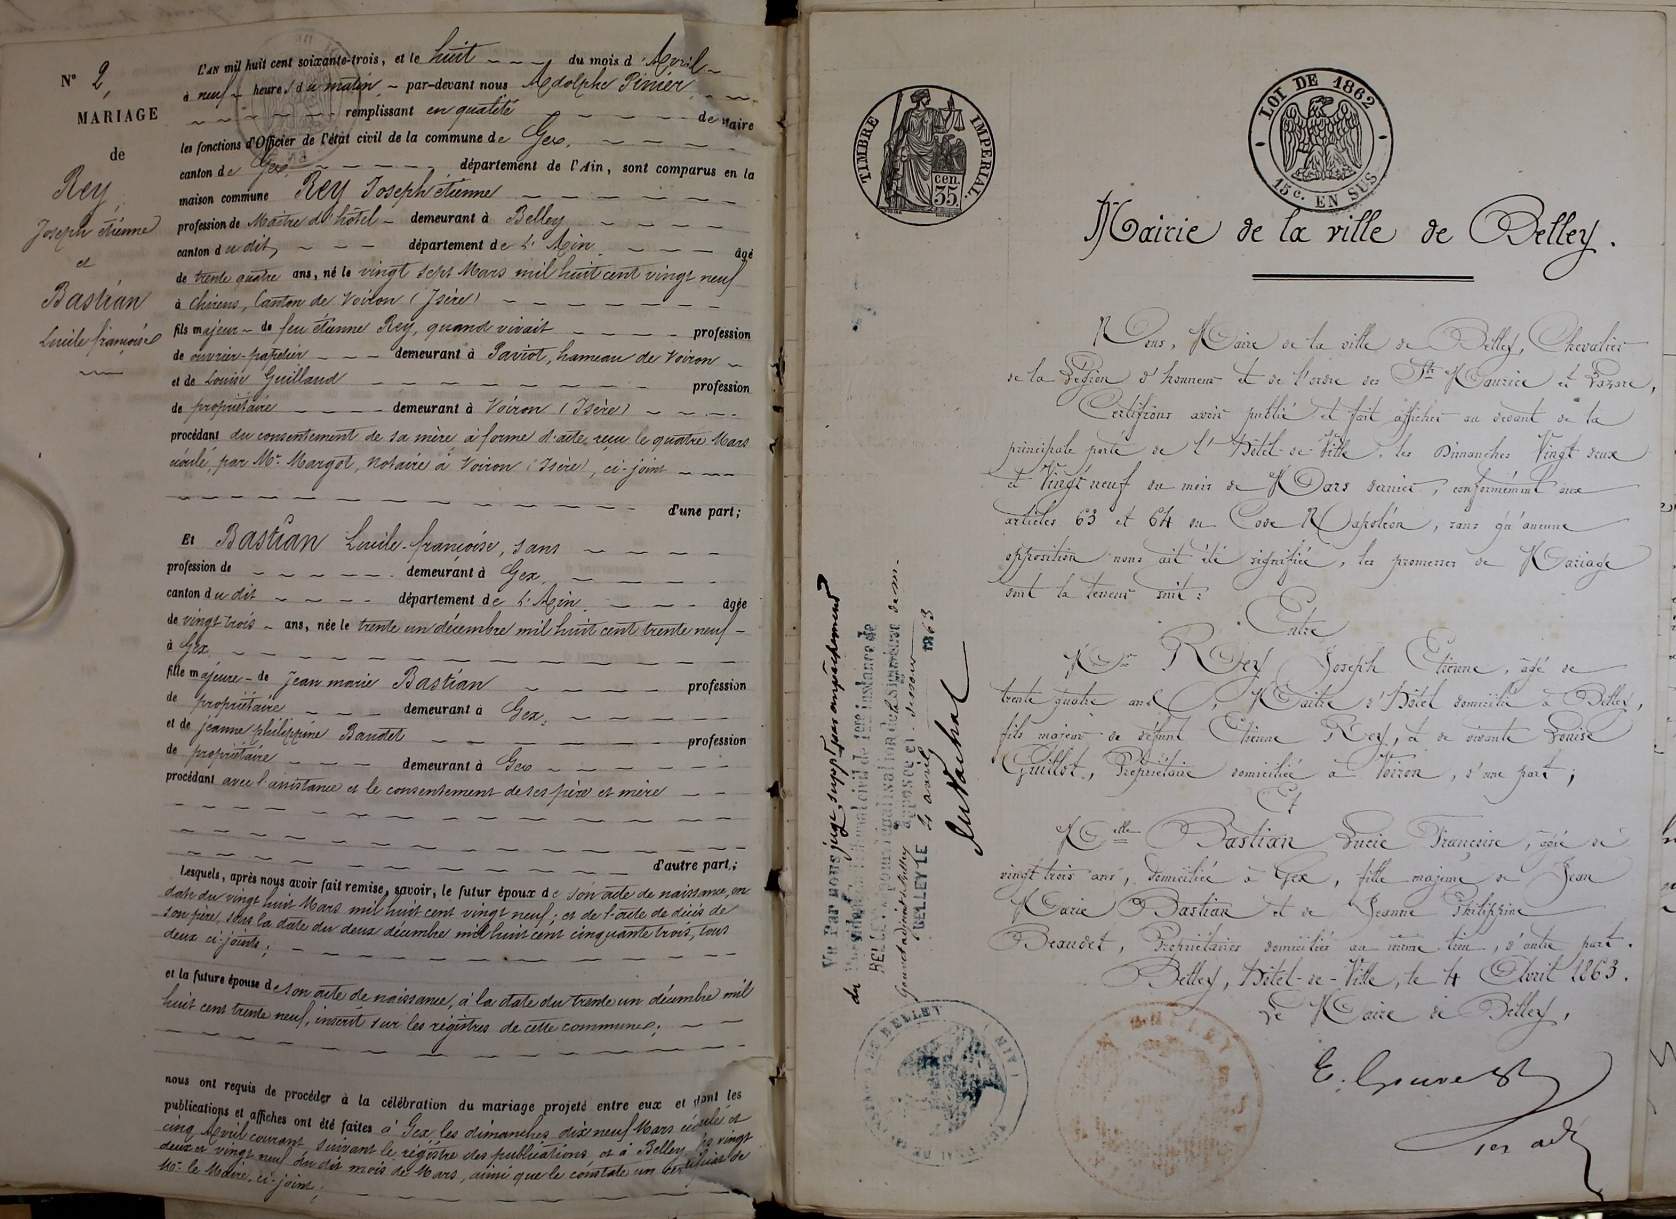 N° 2,
MARIAGE
de
Rey,
Joseph étienne
et
Bastian
Lucile françoise
L'AN mil huit cent soixante-trois, et le huit du mois d'Avril
à neuf heures du matin, par-devant nous Adolphe Pinier
remplissant en qualité de Maire
les fonctions d'Officier de l'état civil de la commune de Gex,
canton de Gex, département de l'Ain, sont comparus en la
maison commune Rey Joseph étienne
profession de Maître d'hôtel demeurant à Belley
canton du dit, département de L'Ain âgé
de trente quatre ans, né le vingt sept Mars mil huit cent vingt neuf
à Chirens, Canton de Voiron (Isère)
fils majeur de feu étienne Rey, quand vivait profession
de ouvrier-papetier demeurant à Paviot, hameau de Voiron
et de Louise Guilland profession
de propriétaire demeurant à Voiron (Isère)
procédant du consentement de sa mère à forme d'acte reçu le quatre Mars
écoulé, par Mr. Margot, Notaire à Voiron (Isère), ci-joint
d'une part;
Et Bastian Lucile-françoise, sans
profession de demeurant à Gex,
canton du dit département de L'Ain, âgée
de vingt trois ans, née le trente un décembre mil huit cent trente neuf
à Gex
fille majeure de Jean marie Bastian profession
de propriétaire demeurant à Gex,
et de jeanne philippine Baudet profession
de propriétaire demeurant à Gex
procédant avec l'assistance et le consentement de ses père et mère
d'autre part;
Lesquels, après nous avoir fait remise, savoir, le futur époux de son acte de naissance, en
date du vingt huit Mars mil huit cent vingt neuf; et de l'acte de décès de
son père, sous la date du deux décembre mil huit cent cinquante trois, tous
deux ci-joints;
et la future épouse de son acte de naissance, à la date du trente un décembre mil
huit cent trente neuf, inscrit sur les régistres de cette commune;
nous ont requis de procéder à la célébration du mariage projeté entre eux et dont les
publications et affiches ont été faites à Gex, les dimanches dix neuf Mars écoulé et
cinq Avril courant, suivant le régistre des publications, et à Belley les vingt
deux et vingt neuf du dit mois de Mars, ainsi que le constate un certificat de
Mr. le Maire, ci-joint;
TIMBRE IMPERIAL.
cen.
35.
LOI DE 1862
15 c. EN SUS
Mairie de la ville de Belley.
Nous, Maire de la ville de Belley, Chevalier
de la Légion d'honneur et de l'ordre des Sts Maurice et Lazare,
Certifions avoir publié et fait afficher au devant de la
principale porte de l'Hôtel-de-Ville, les Dimanches Vingt deux
et Vingt neuf du mois de Mars dernier, conformément aux
articles 63 et 64 du Code Napoléon, sans qu'aucune
opposition nous ait été signifiée, les promesses de Mariage
dont la teneur suit:
Entre
Mr Rey Joseph Etienne, âgé de
trente quatre ans, Maître d'Hôtel domicilié à Belley,
fils majeur de défunt Etienne Rey, et de vivante Louise
Guillot, Propriétaire domiciliée à Voiron, d'une part;
Et
Melle Bastian Lucie Françoise, âgée de
vingt trois ans, domiciliée à Gex, fille majeure de Jean
Marie Bastian et de Jeanne Philippine
Beaudet, Propriétaires domiciliés au même lieu, d'autre part.
Belley, Hôtel-de-Ville, le 4 Avril 1863.
Le Maire de Belley,
Vu Par nous juge suppt par empêchement
du Président du tribunal civil de 1ère instance de
BELLEY pour légalisation de la signature de M.
apposée ci-dessus
BELLEY LE 4 avril 1863